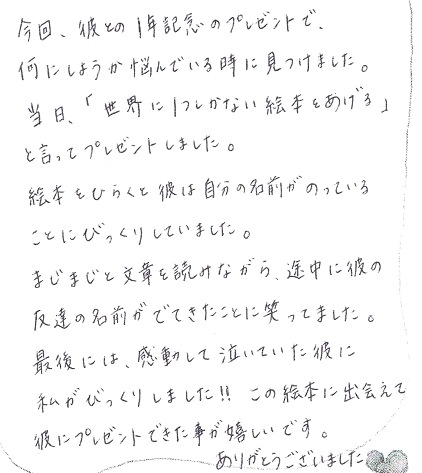 今回、彼との1年記念のプレゼントで、
何にしようか悩んでいる時に見つけました。
当日、「世界に1つしかない絵本をあげる」
と言ってプレゼントしました。
絵本をひらくと彼は自分の名前がのっている
ことにびっくりしていました。
まじまじと文章を読みながら、途中に彼の
友達の名前がでてきたことに笑ってました。
最後には、感動して泣いていた彼に
私がびっくりしました!! この絵本に出会えて
彼にプレゼントできた事が嬉しいです。
ありがとうございました